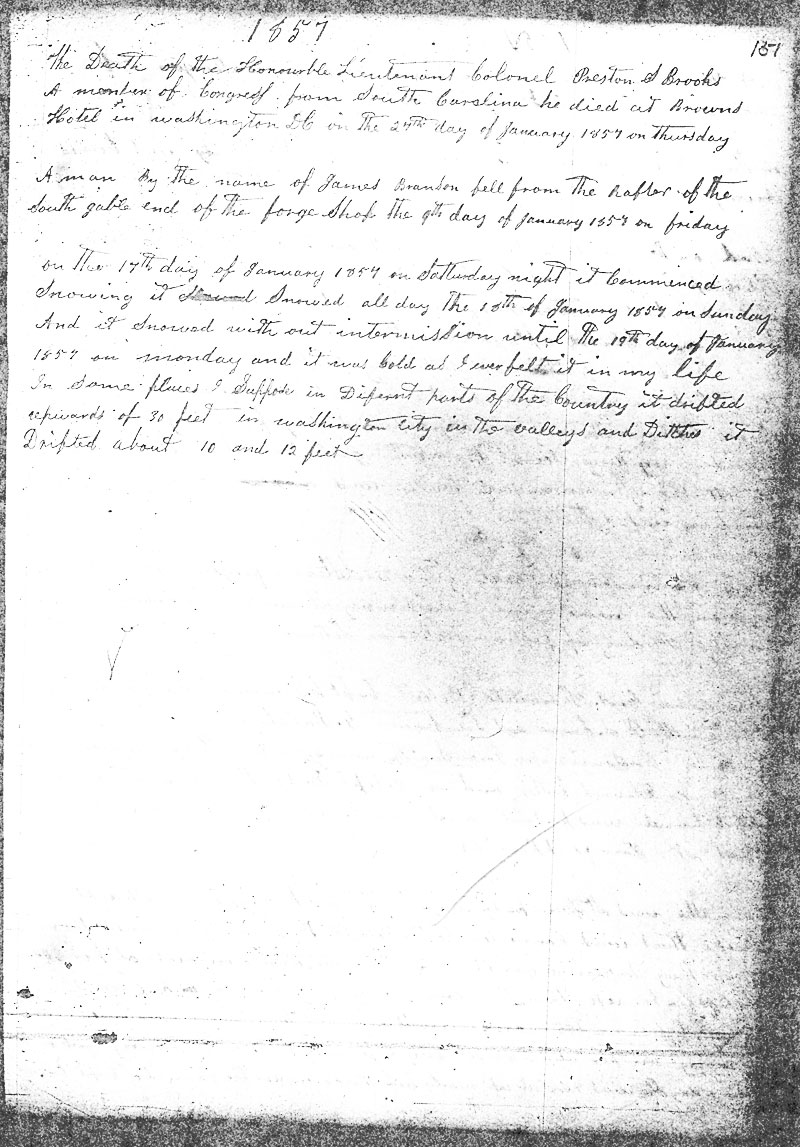 1857
151
The Death of the Honourble Lieutenant Colonel Preston S Brooks
A member of Congress from South Carolina he died at Browns
Hotel in washington DC on the 27th day of January 1857 on thursday
A man By the name of James Branson fell from the Rafter of the
South gable end of the forge Shop the 9th day of January 1857 on friday
on the 17th day of January 1857 on Satturday night it Commenced
Snowing it Snowed all day the 18th of January 1857 on Sunday
And it Snowed with out intermission until the 19th day of January
1857 on monday and it was Cold as I ever felt it in my life
In Some places I Suppose in Difernt parts of the Country it drifted
upwards of 30 feet in washington City in the valleys and Ditches it
Drifted about 10 and 12 feet